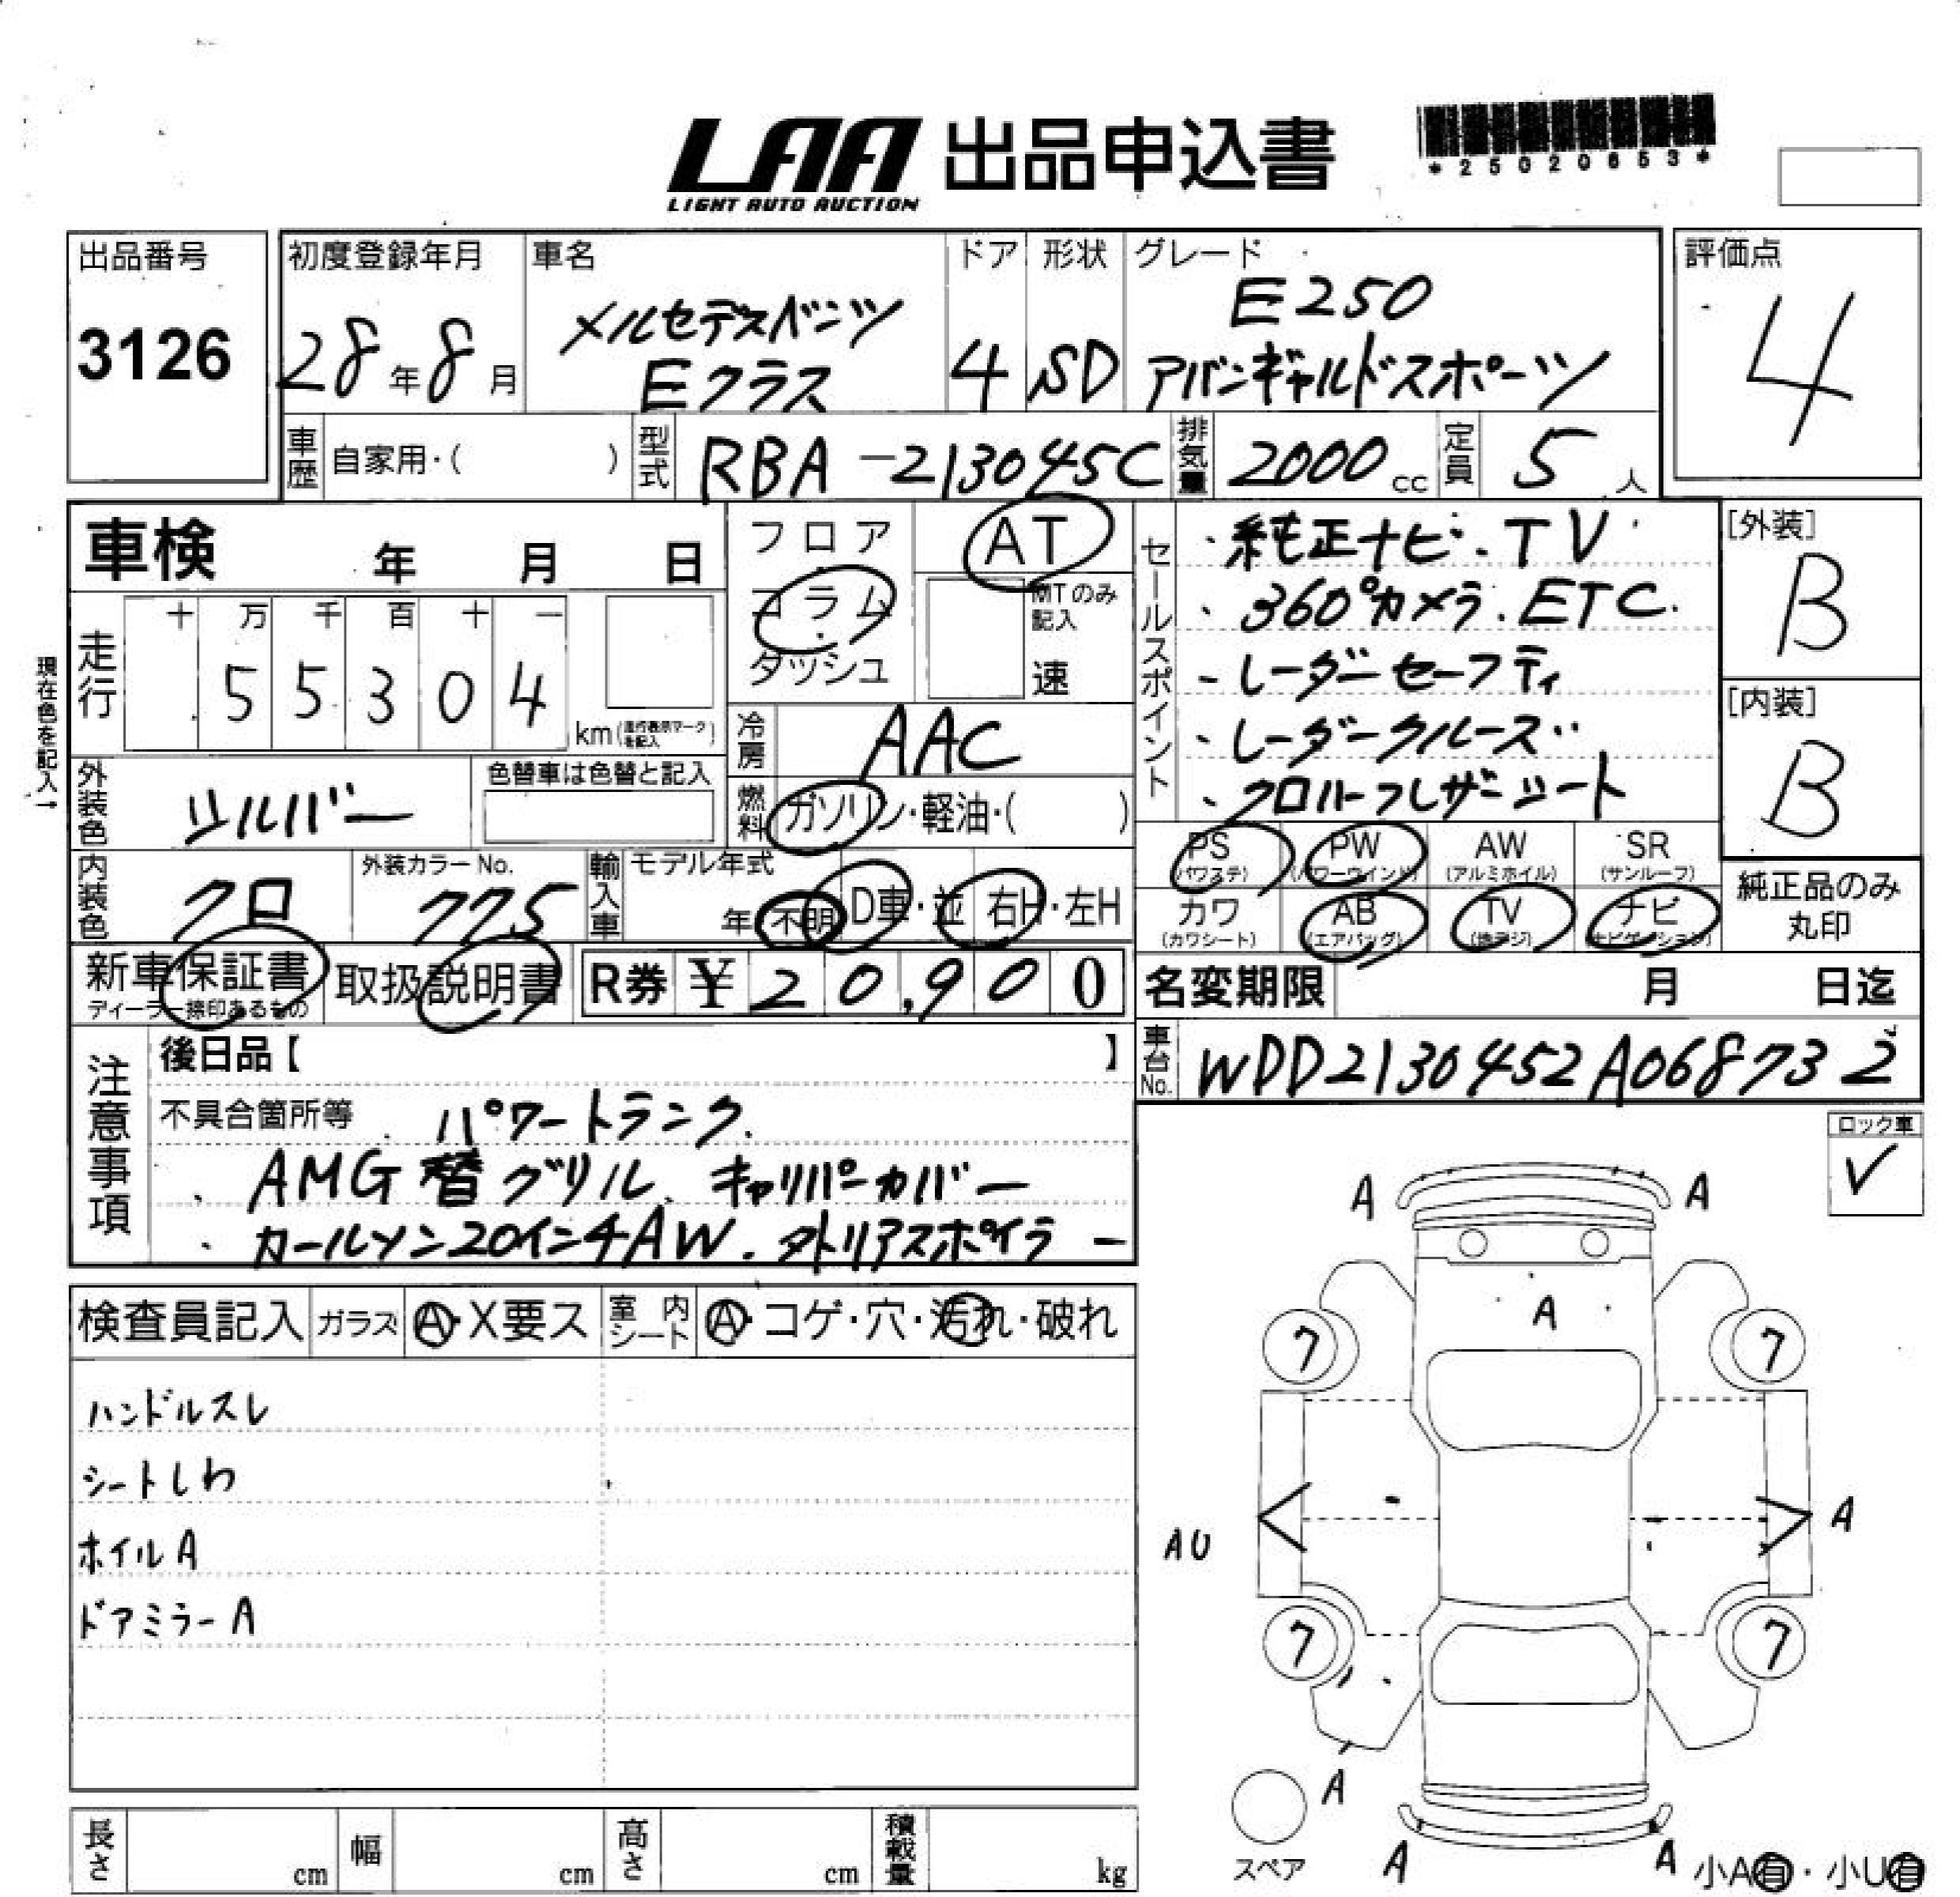 LAA 出品申込書
LIGHT AUTO AUCTION
*25020653*
出品番号
3126
初度登録年月
28年8月
車名
メルセデスベンツ
Eクラス
ドア
4
形状
SD
グレード
E250
アバンギャルドスポーツ
評価点
4
車歴 自家用・( )
型式 RBA-213045C
排気量 2000cc
定員 5人
車検 年 月 日
フロア
コラム
ダッシュ
AT
MTのみ記入
速
セールスポイント
・純正ナビ・TV
・360°カメラ・ETC
・レーダーセーフティ
・レーダークルーズ
・クロハーフレザーシート
[外装]
B
[内装]
B
現在色を記入→
走行
十 万 千 百 十 一
55304 km(走行表示マークを記入)
冷房 AAC
外装色 シルバー
色替車は色替と記入
燃料 ガソリン・軽油・( )
PS (パワステ)
PW (パワーウインド)
AW (アルミホイル)
SR (サンルーフ)
カワ (カワシート)
AB (エアバッグ)
TV (地デジ)
ナビ (ナビゲーション)
純正品のみ
丸印
内装色 クロ
外装カラーNo.
775
輸入車 モデル年式
年 不明 D車・並 右H・左H
新車保証書
ディーラー捺印あるもの
取扱説明書
R券 ¥20,900
名変期限 月 日迄
車台No. WDD2130452A068732
注意事項
後日品【 】
不具合箇所等 ・パワートランク.
・AMG替グリル、キャリパーカバー
・カールソン20インチAW.タトリアスポイラー
ロック車
✓
検査員記入
ガラス A・X要ス
室内シート A・コゲ・穴・汚れ・破れ
ハンドルスレ
シートしわ
ホイルA
ドアミラーA
A A
A
7 7
AU A
7 7
A
A A
スペア
小A有・小U有
長さ cm
幅 cm
高さ cm
積載量 kg